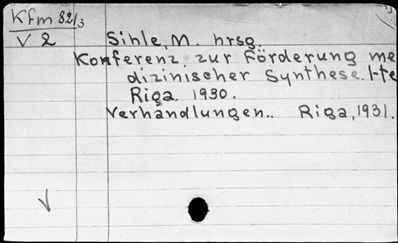 Kfm 82/3
V 2 Sihle, M. hrsg.
Konferenz zur Förderung me
dizinischer Synthese. 1-te
Riga. 1930.
Verhandlungen.. Riga, 1931.
V